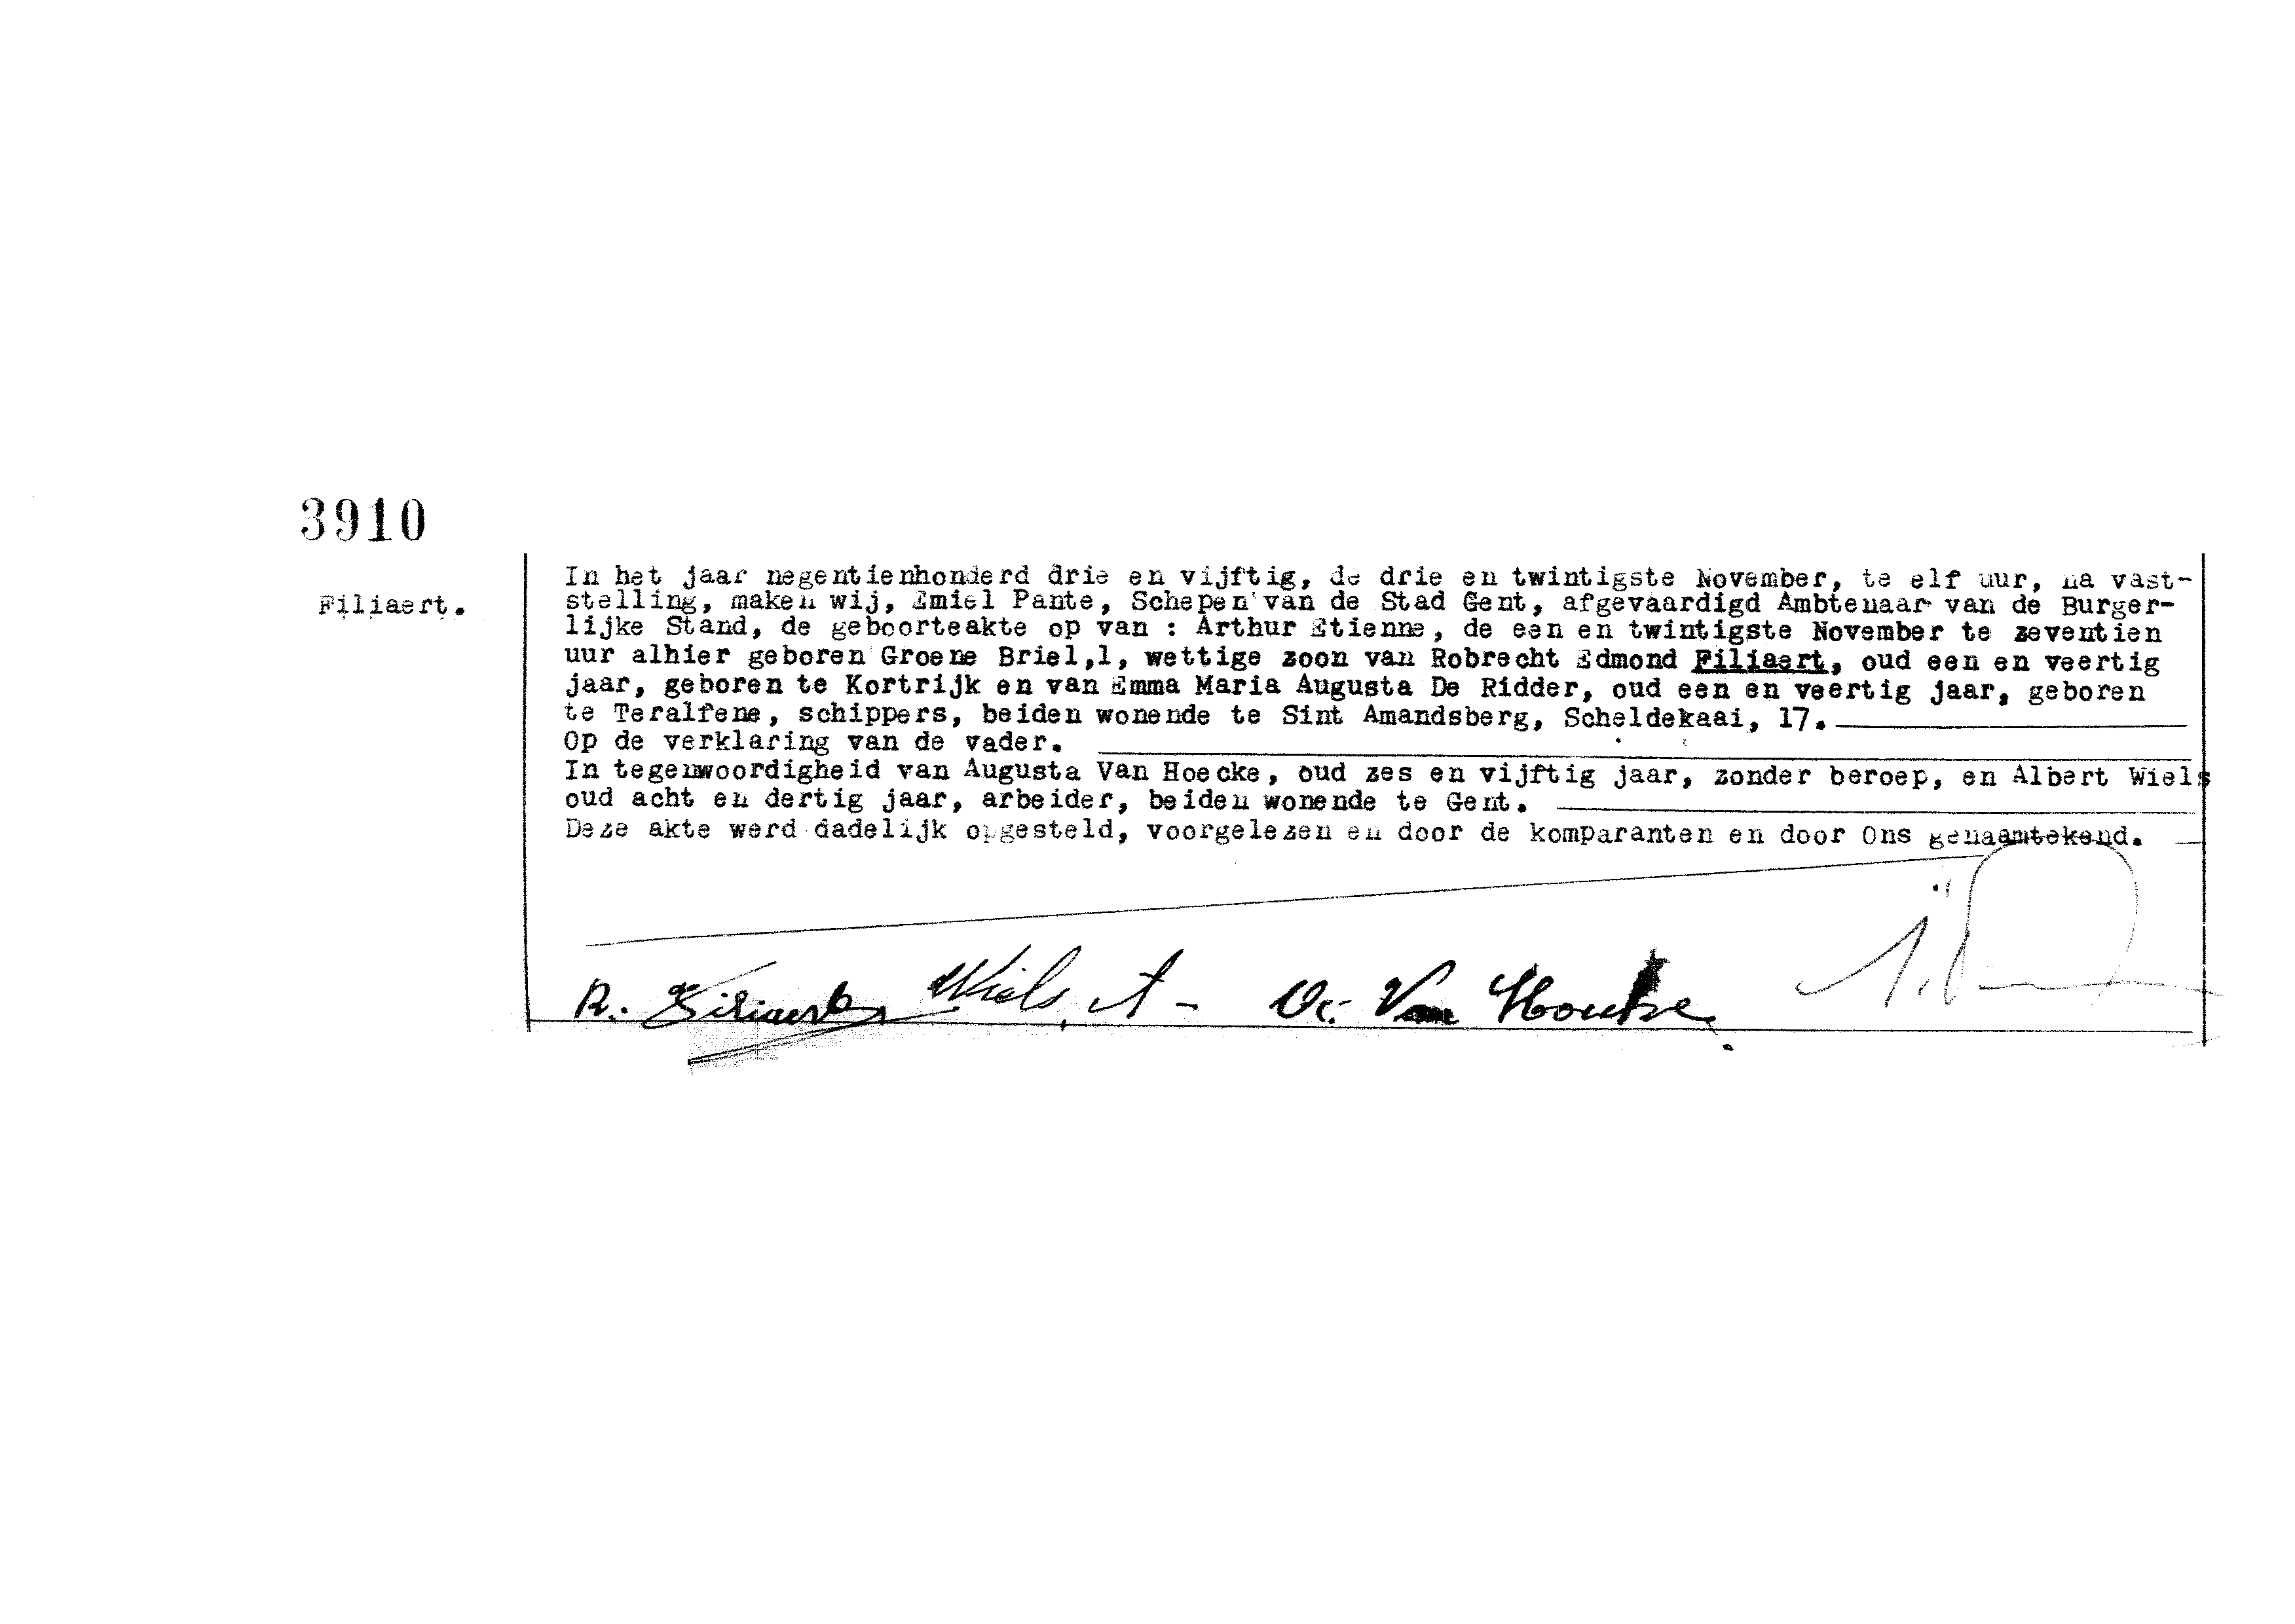 3910
Filiaert.
In het jaar negentienhonderd drie en vijftig, de drie en twintigste November, te elf uur, na vast-
stelling, maken wij, Emiel Pante, Schepen van de Stad Gent, afgevaardigd Ambtenaar van de Burger-
lijke Stand, de geboorteakte op van : Arthur Etienne, de een en twintigste November te zeventien
uur alhier geboren Groene Briel,1, wettige zoon van Robrecht Edmond Filiaert, oud een en veertig
jaar, geboren te Kortrijk en van Emma Maria Augusta De Ridder, oud een en veertig jaar, geboren
te Teralfene, schippers, beiden wonende te Sint Amandsberg, Scheldekaai, 17.
Op de verklaring van de vader.
In tegenwoordigheid van Augusta Van Hoecke, oud zes en vijftig jaar, zonder beroep, en Albert Wiels
oud acht en dertig jaar, arbeider, beiden wonende te Gent.
Deze akte werd dadelijk opgesteld, voorgelezen en door de komparanten en door Ons genaamtekend.
R. Filiaert Wiels, A - Van